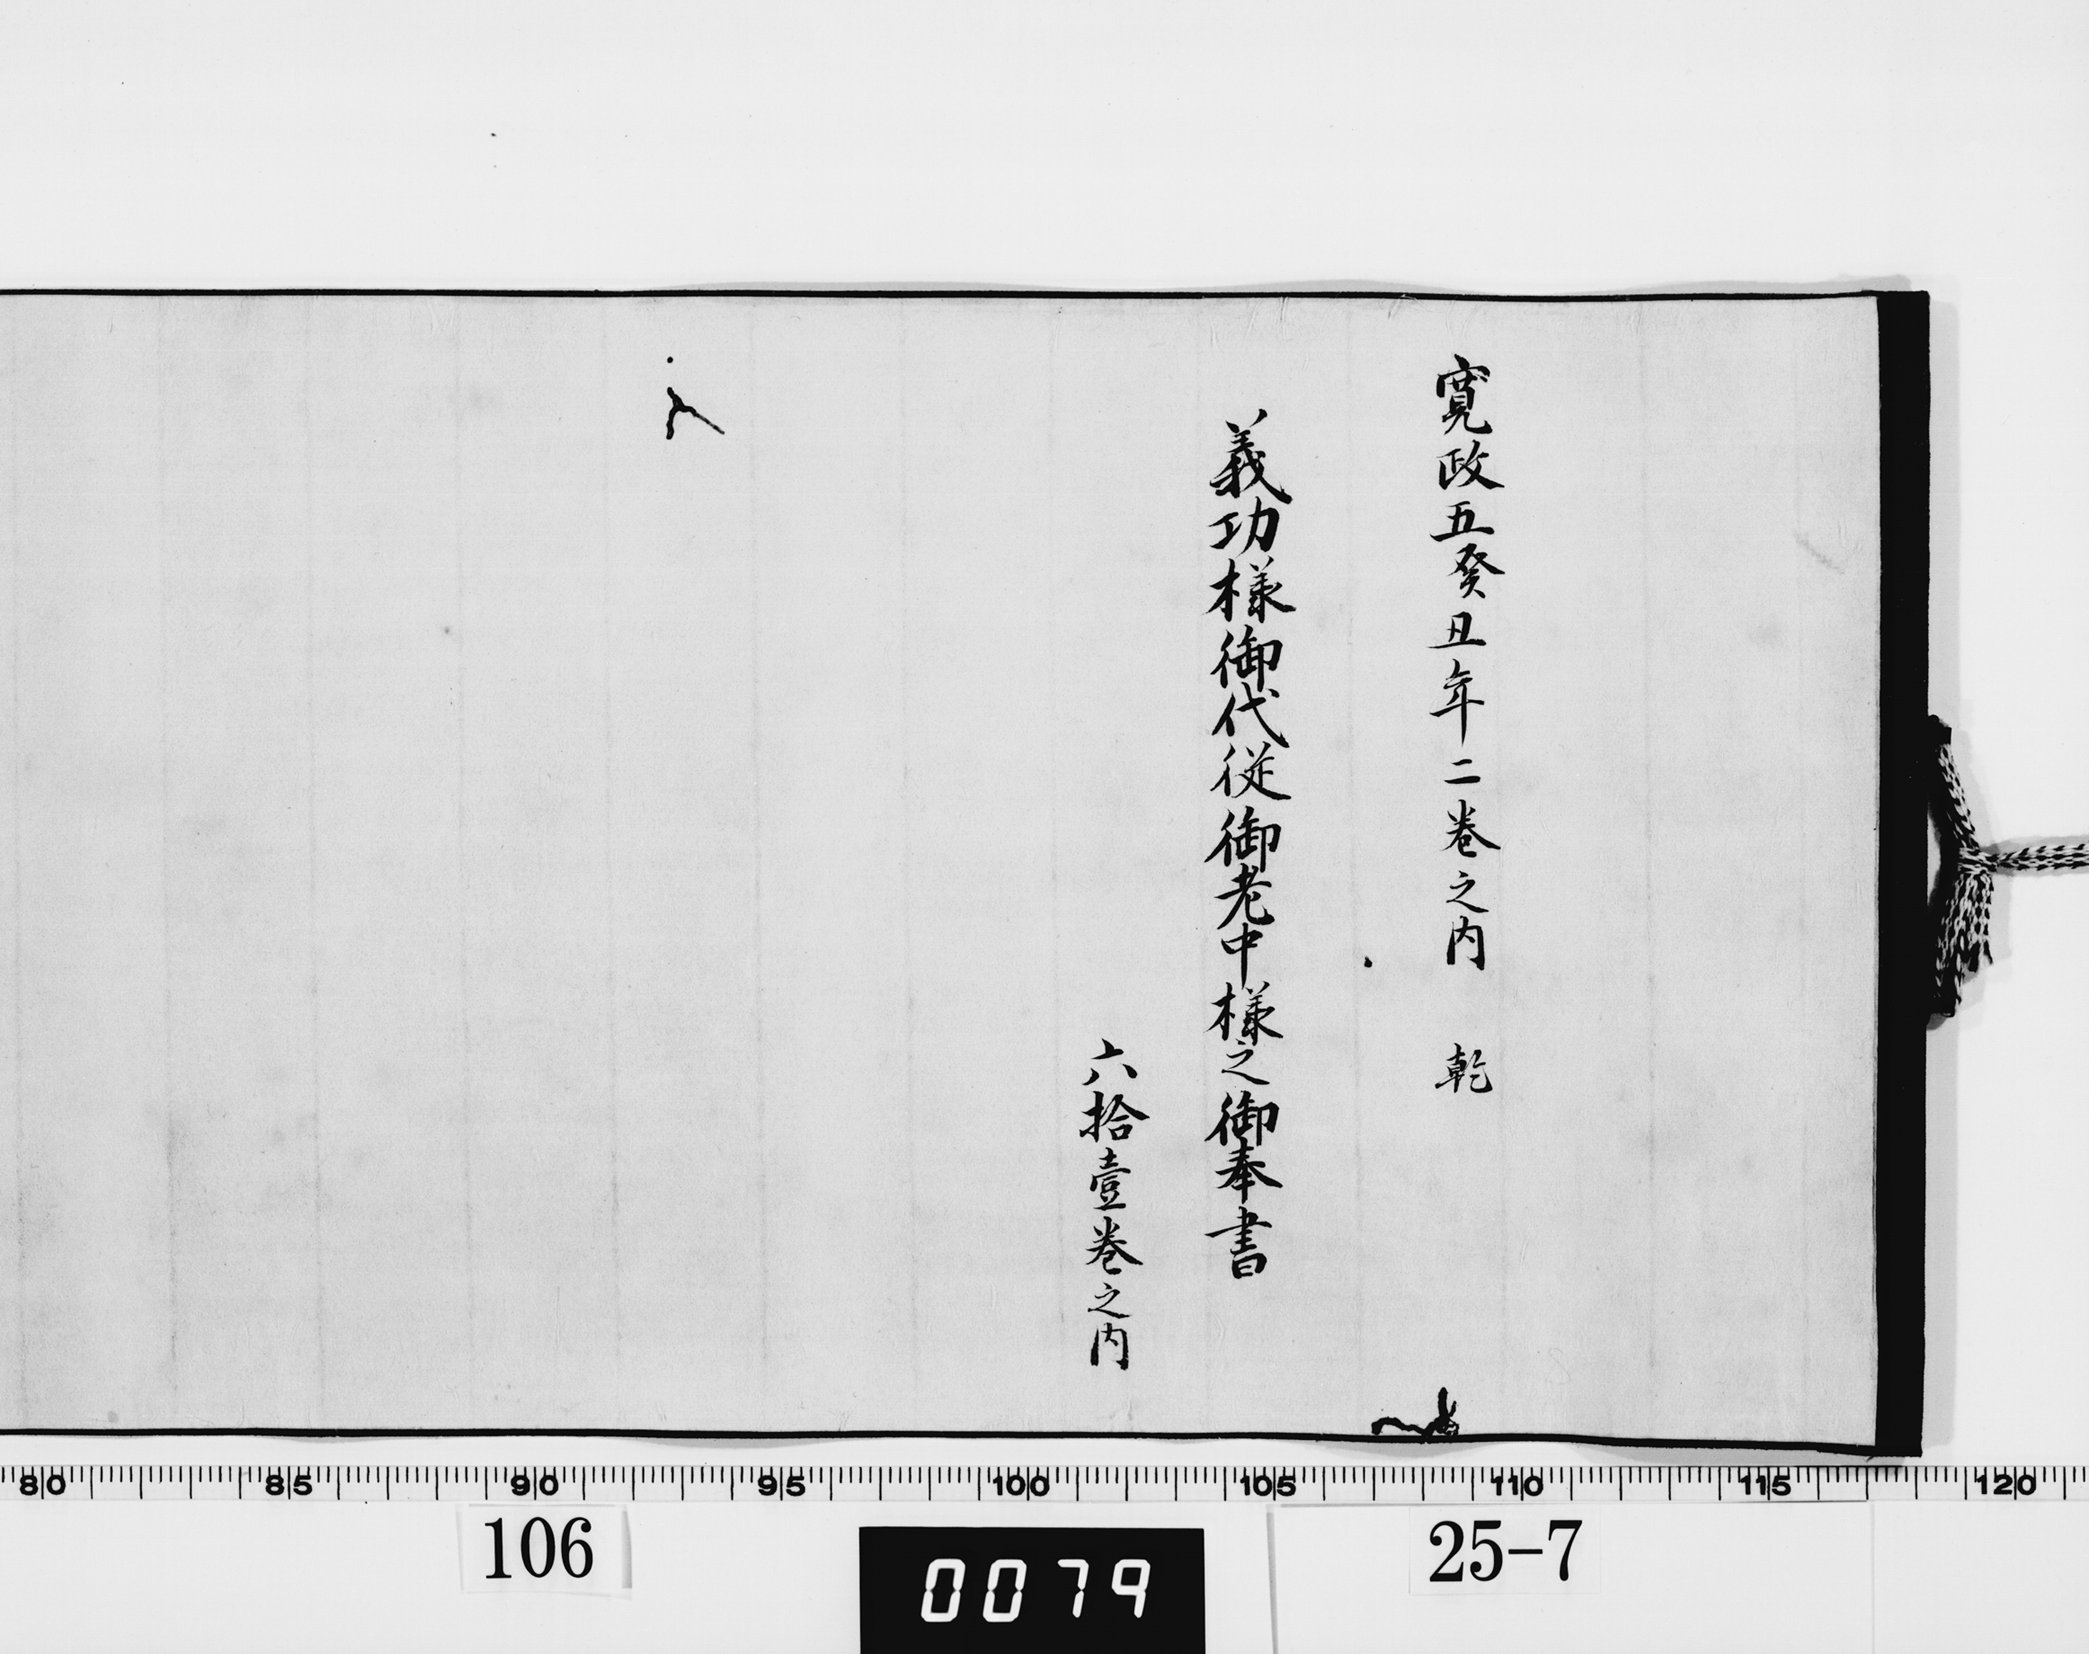 寛政五癸丑年二巻之内　乾
義功様御代従御老中様之御奉書
六拾壹巻之内
80 85 90 95 100 105 110 115 120
106
0079
25-7